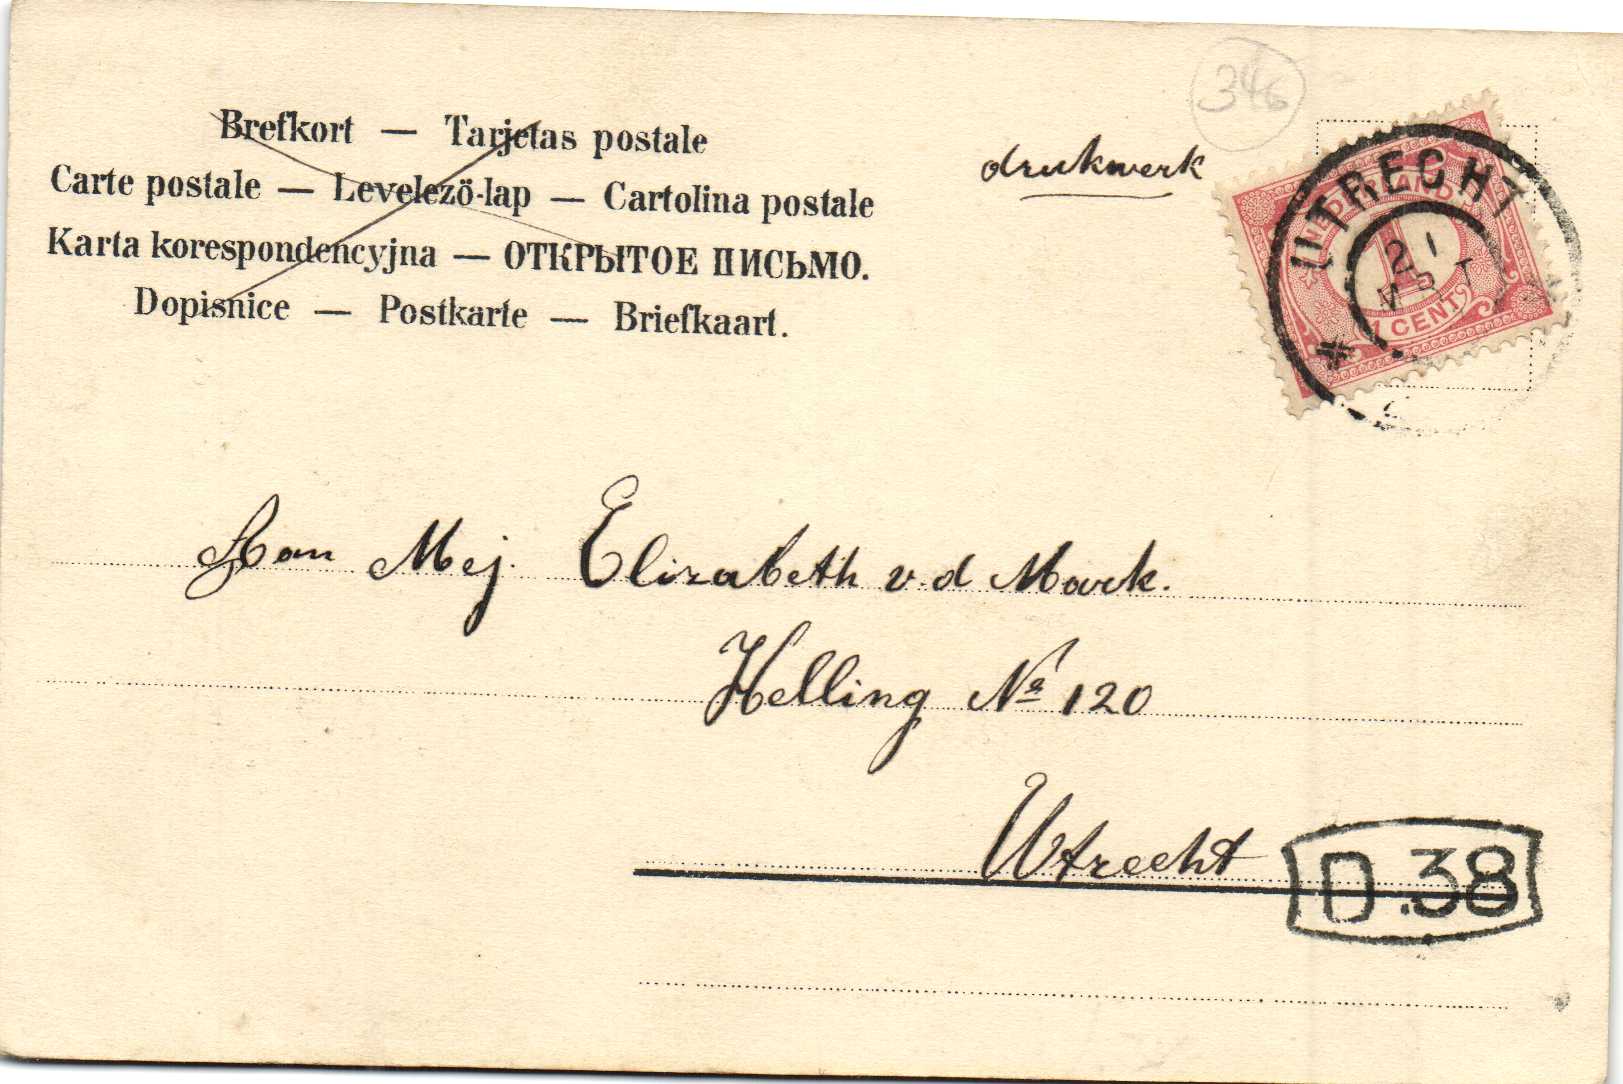 346
Brefkort — Tarjetas postale
Carte postale — Levelezö-lap — Cartolina postale
Karta korespondencyjna — ОТКРЫТОЕ ПИСЬМО.
Dopisnice — Postkarte — Briefkaart.
drukwerk
UTRECHT
NEDERLAND
1
1 CENT
Aan Mej. Elizabeth v.d Mark.
Helling No 120
Utrecht
D.38